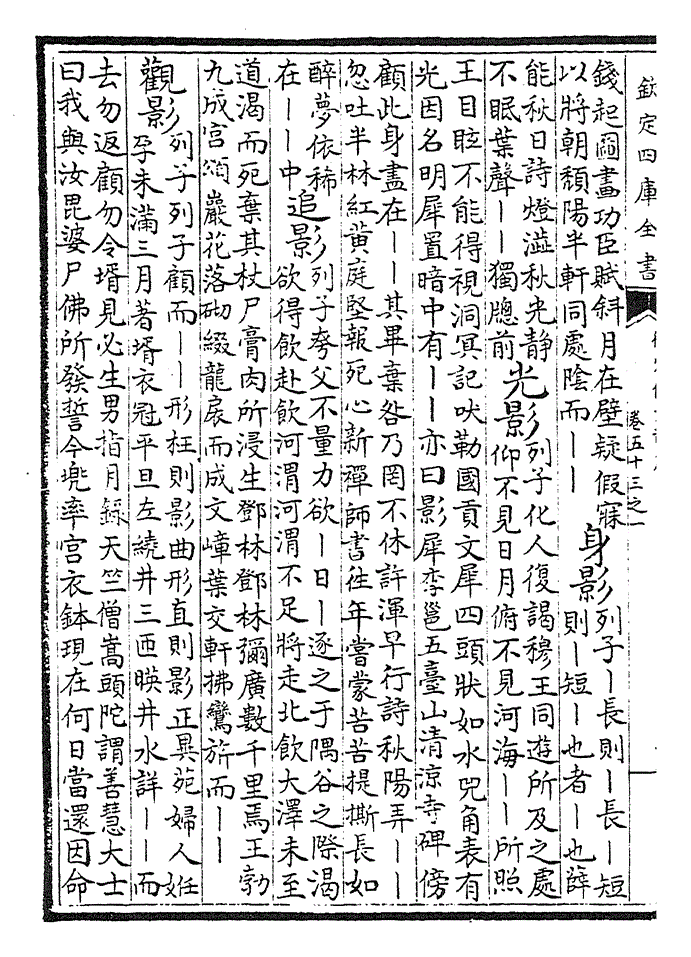 欽定四庫全書
卷五十三之一
錢起圖畫功臣賦斜月在壁疑假寐
以將朝頹陽半軒同處陰而｜｜
身影
列子｜長則｜長｜短
則｜短｜也者｜也薛
能秋日詩燈澁秋光静
不眠葉聲｜｜獨牕前
光影
列子化人復謁穆王同遊所及之處
仰不見日月俯不見河海｜｜所照
王目眩不能得視洞冥記吠勒國貢文犀四頭狀如水兕角表有
光因名明犀置暗中有｜｜亦曰影犀李邕五臺山清涼寺碑傍
顧此身盡在｜｜其畢棄咎乃罔不休許渾早行詩秋陽弄｜｜
忽吐半林紅黄庭堅報死心新禪師書徃年嘗蒙苦苦提撕長如
醉夢依稀
在｜｜中
追影
列子夸父不量力欲｜日｜逐之于隅谷之際渴
欲得飲赴飲河渭河渭不足將走北飲大澤未至
道渴而死棄其杖尸膏肉所浸生鄧林鄧林彌廣數千里焉王勃
九成宮頌巖花落砌綴龍扆而成文嶂葉交軒拂鸞旂而｜｜
觀影
列子列子顧而｜｜形枉則影曲形直則影正異苑婦人姙
孕未滿三月著壻衣冠平旦左繞井三匝暎井水詳｜｜而
去勿返顧勿令壻見必生男指月錄天竺僧嵩頭陀謂善慧大士
曰我與汝毘婆尸佛所發誓今兜率宮衣鉢現在何日當還因命